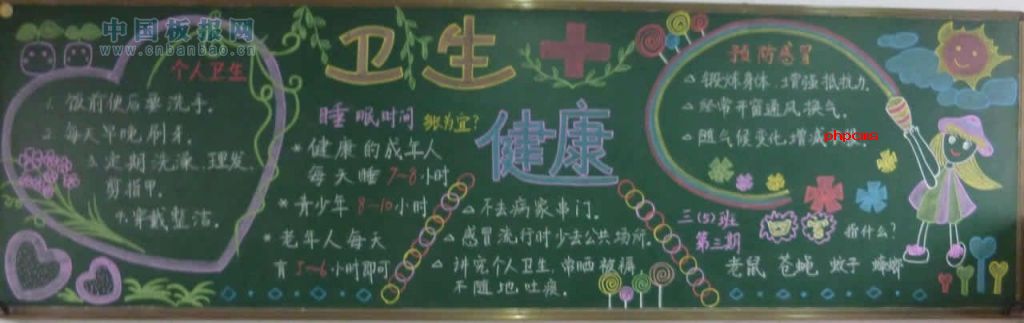 中国板报网
www.cnbanbao.cn
个人卫生
1. 饭前便后要洗手.
2. 每天早晚刷牙.
3. 定期洗澡、理发、
剪指甲.
4. 穿戴整洁.
卫生
健康
睡眠时间 多少为宜?
* 健康的成年人
每天睡7~8小时
* 青少年8~10小时
* 老年人每天
有5~6小时即可
不去病家串门.
感冒流行时少去公共场所.
讲究个人卫生,常晒被褥
不随地吐痰.
预防感冒
锻炼身体、增强抵抗力.
经常开窗通风、换气.
随气候变化,增减
phpcms
三(5)班
第三期
四害 指什么?
老鼠 苍蝇 蚊子 蟑螂